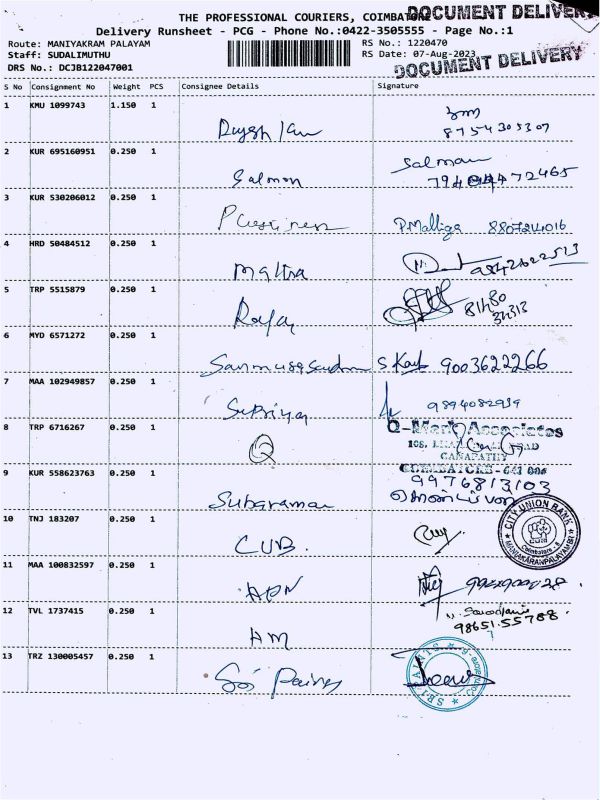 THE PROFESSIONAL COURIERS, COIMBATORE
DOCUMENT DELIVERY
Delivery Runsheet - PCG - Phone No.:0422-3505555 - Page No.:1
Route: MANIYAKRAM PALAYAM
RS No.: 1220470
Staff: SUDALIMUTHU
RS Date: 07-Aug-2023
DRS No.: DCJB122047001
DOCUMENT DELIVERY
S No Consignment No Weight PCS Consignee Details Signature
1 KMU 1099743 1.150 1
8754305307
2 KUR 695160951 0.250 1
Salmon
Salman
3 KUR 530206012 0.250 1
P.Malliga
4 HRD 50484512 0.250 1
9842622513
5 TRP 5515879 0.250 1
6 MYD 6571272 0.250 1
9003622266
7 MAA 102949857 0.250 1
Supriya
9894082939
8 TRP 6716267 0.250 1
Q
Q-Mark Associates
GANAPATHY
COIMBATORE - 641 006
9 KUR 558623763 0.250 1
Subaraman
9976813103
10 TNJ 183207 0.250 1
CUB.
CITY UNION BANK
11 MAA 100832597 0.250 1
12 TVL 1737415 0.250 1
AM
98651-55788
13 TRZ 130005457 0.250 1
Sri Paints
SRI PAINTS